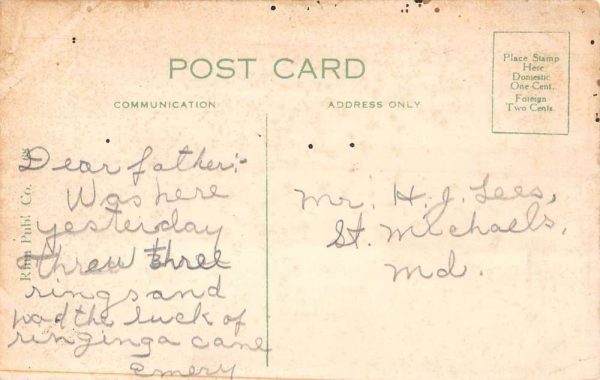 POST CARD
COMMUNICATION
ADDRESS ONLY
Place Stamp
Here
Domestic
One Cent.
Foreign
Two Cents.
Dear father:-
Was here
yesterday
threw three
rings and
had the luck of
ringing a cane
Emery
Mr. H. J. Lees,
St. Michaels,
Md.
Publ. Co.